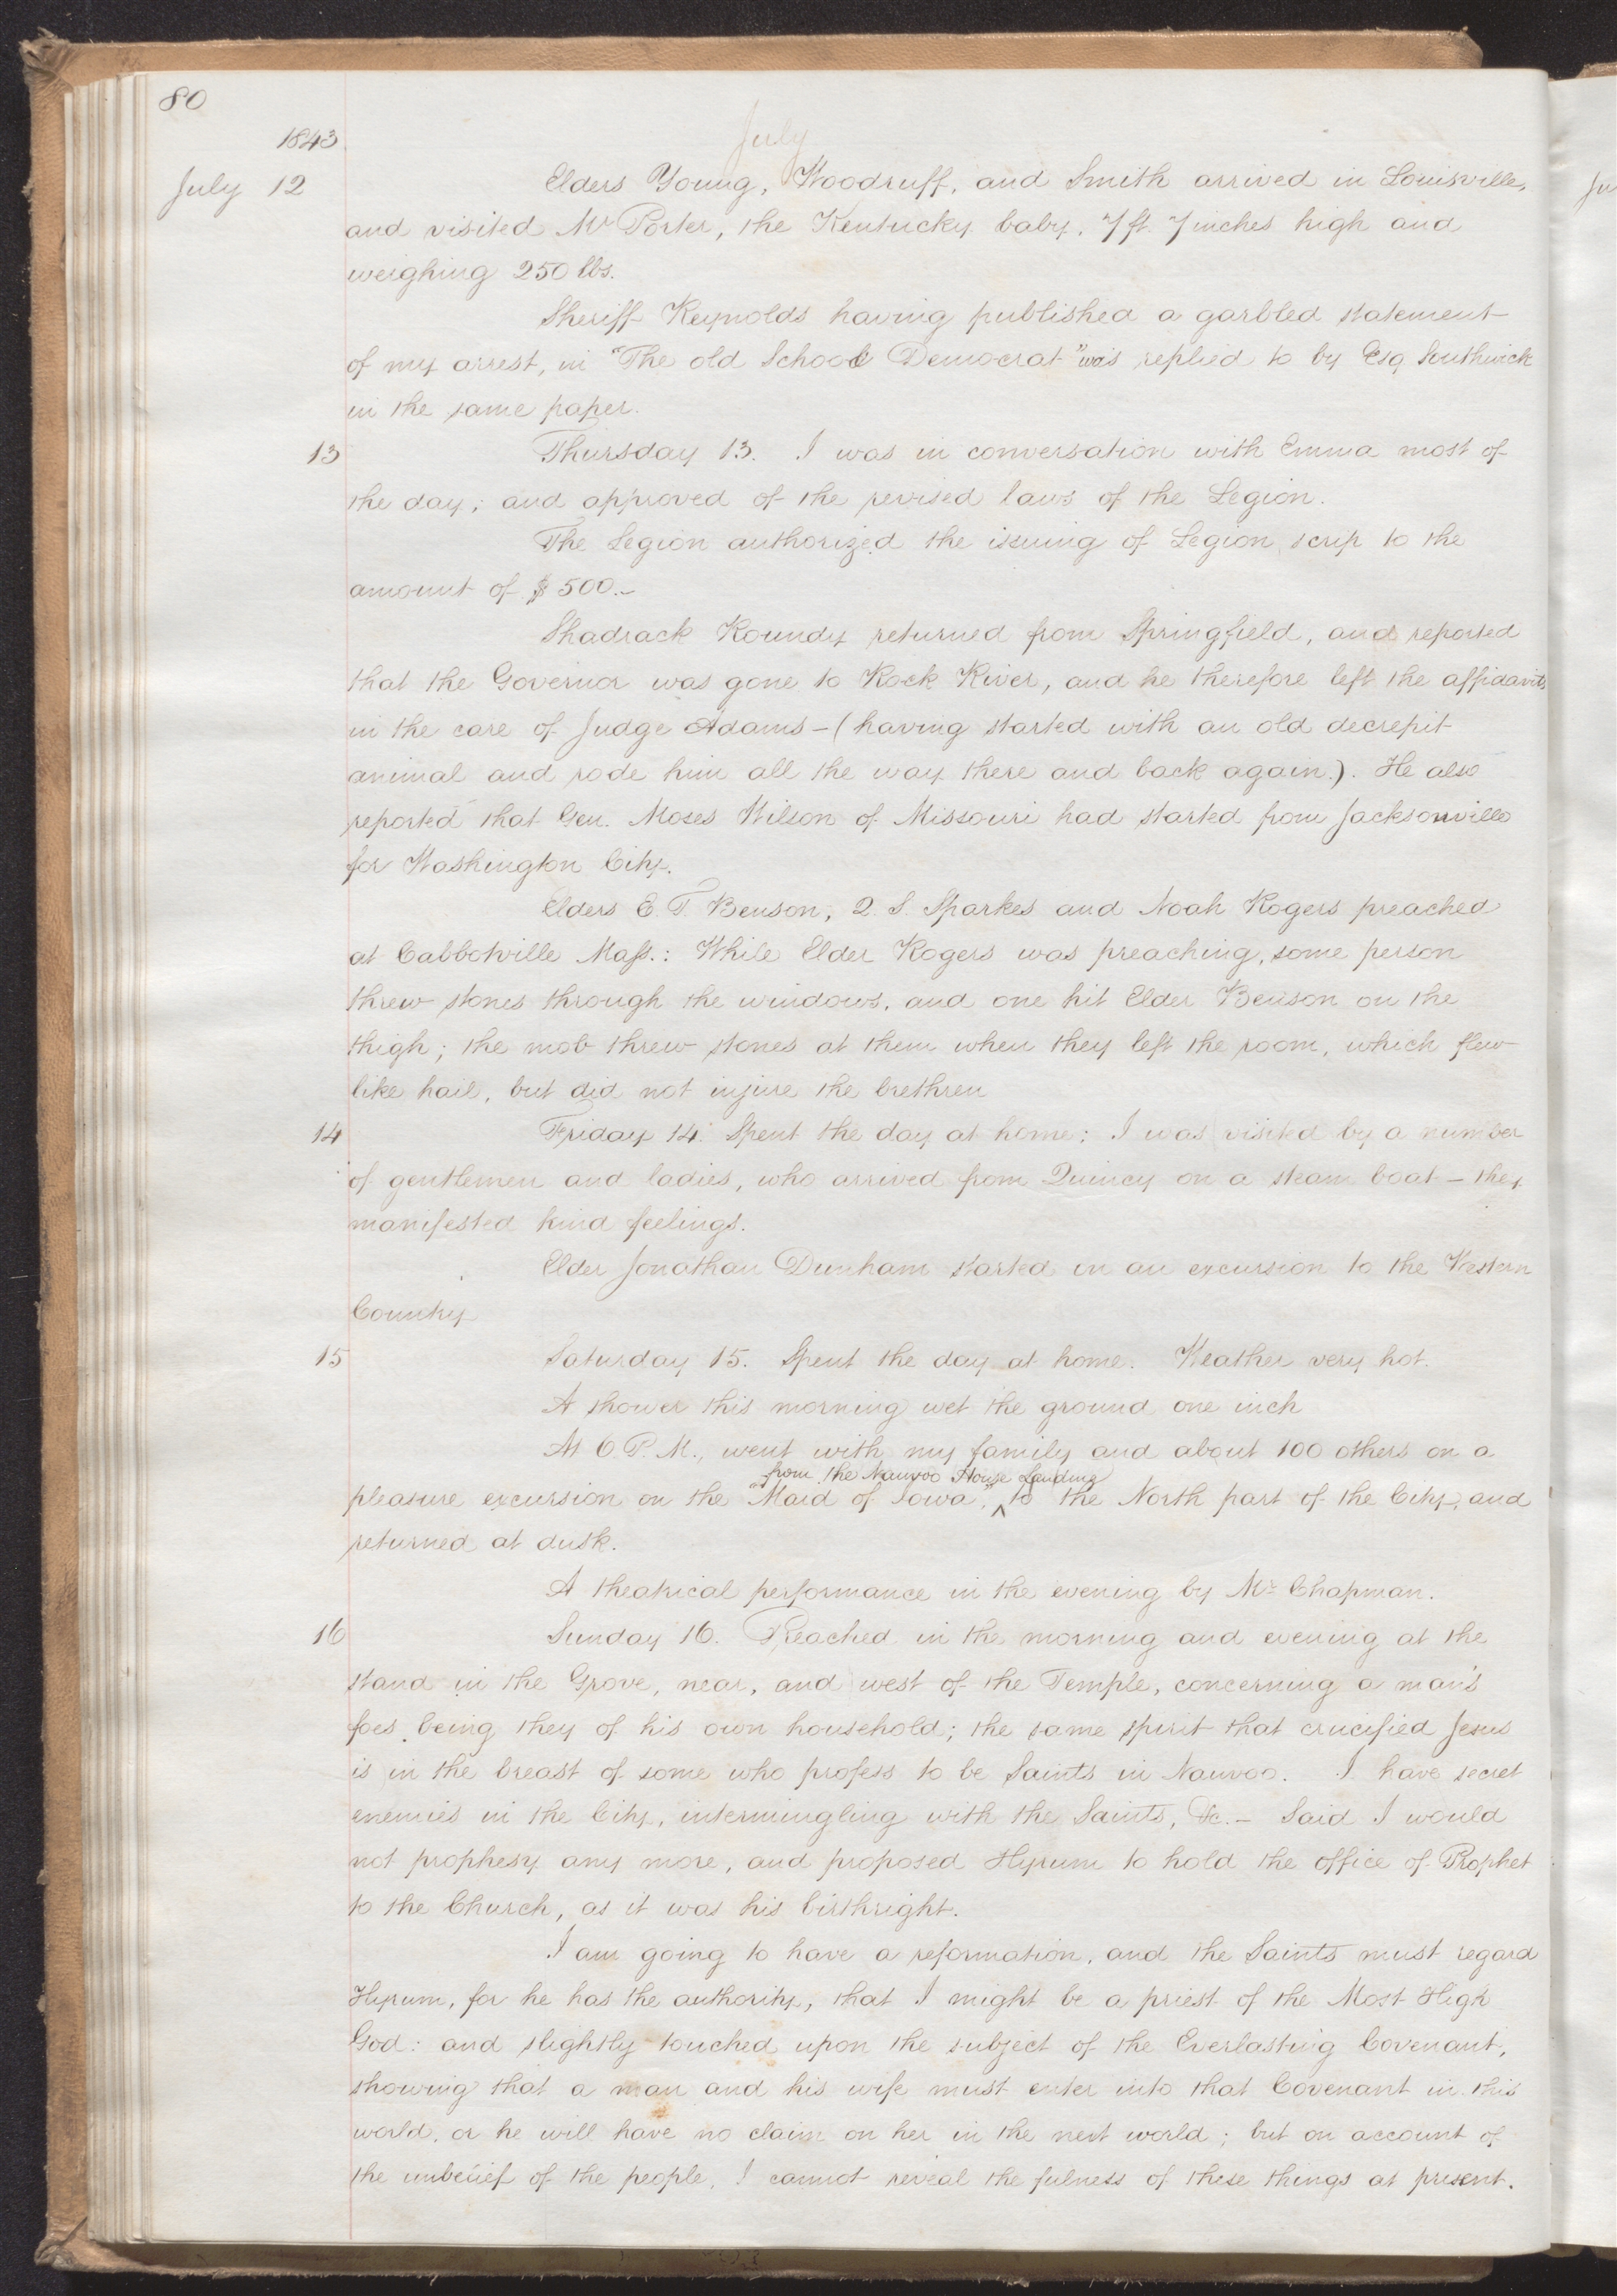 80
1843
July
July 12 Elders Young, Woodruff, and Smith arrived in Louisville,
and visited Mr Porter, the Kentucky baby, 7 ft. 7 inches high and
weighing 250 lbs.
Sheriff Reynolds having published a garbled statement
of my arrest, in "The old School Democrat" was replied to by Esq Southwick
in the same paper.
13 Thursday 13. I was in conversation with Emma most of
the day; and approved of the revised laws of the Legion.
The Legion authorized the issuing of Legion scrip to the
amount of $500.–
Shadrack Roundy returned from Springfield, and reported
that the Governor was gone to Rock River, and he therefore left the affidavits
in the care of Judge Adams – (having started with an old decrepit
animal and rode him all the way there and back again.). He also
reported that Gen. Moses Wilson of Missouri had started from Jacksonville
for Washington City.
Elders E. T. Benson, Q. S. Sparkes and Noah Rogers preached
at Cabbotville Mass.: While Elder Rogers was preaching, some person
threw stones through the windows, and one hit Elder Benson on the
thigh; the mob threw stones at them when they left the room, which flew
like hail, but did not injure the brethren
14 Friday 14. Spent the day at home; I was visited by a number
of gentlemen and ladies, who arrived from Quincy on a steam boat – they
manifested kind feelings.
Elder Jonathan Dunham started on an excursion to the Western
Country
15 Saturday 15. Spent the day at home. Weather very hot.
A shower this morning wet the ground one inch
At 6. P. M., went with my family and about 100 others on a
from the Nauvoo House Landing
pleasure excursion on the "Maid of Iowa," ^ to the North part of the City, and
returned at dusk.
A theatrical performance in the evening by Mr. Chapman.
16 Sunday 16. Preached in the morning and evening at the
stand in the Grove, near, and west of the Temple, concerning a man's
foes being they of his own household; the same spirit that crucified Jesus
is in the breast of some who profess to be Saints in Nauvoo. I have secret
enemies in the City, intermingling with the Saints, &c. – Said I would
not prophesy any more, and proposed Hyrum to hold the office of Prophet
to the Church, as it was his birthright.
I am going to have a reformation, and the Saints must regard
Hyrum, for he has the authority, that I might be a priest of the Most High
God: and slightly touched upon the subject of the Everlasting Covenant,
showing that a man and his wife must enter into that Covenant in this
world, or he will have no claim on her in the next world; but on account of
the unbelief of the people, I cannot reveal the fulness of these things at present.
Ju